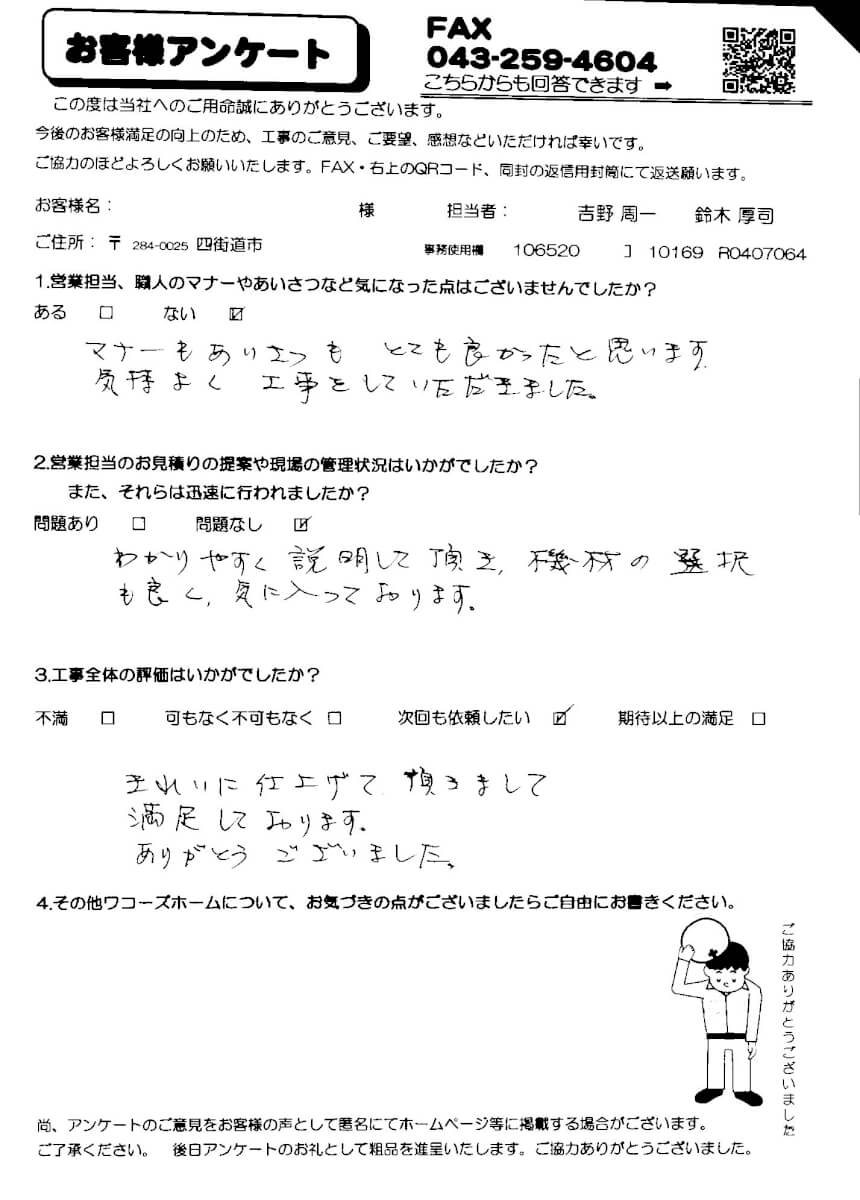 お客様アンケート
FAX
043-259-4604
こちらからも回答できます ➡
この度は当社へのご用命誠にありがとうございます。
今後のお客様満足の向上のため、工事のご意見、ご要望、感想などいただければ幸いです。
ご協力のほどよろしくお願いいたします。FAX・右上のQRコード、同封の返信用封筒にて返送願います。
お客様名： 様 担当者： 吉野 周一 鈴木 厚司
ご住所：〒 284-0025 四街道市 事務使用欄 106520 ] 10169 R0407064
1.営業担当、職人のマナーやあいさつなど気になった点はございませんでしたか？
ある □ ない ☑
マナーもあいさつも とても良かったと思います
気持よく 工事をしていただきました。
2.営業担当のお見積りの提案や現場の管理状況はいかがでしたか？
また、それらは迅速に行われましたか？
問題あり □ 問題なし ☑
わかりやすく説明して頂き、機材の選択
も良く、気に入っております。
3.工事全体の評価はいかがでしたか？
不満 □ 可もなく不可もなく □ 次回も依頼したい ☑ 期待以上の満足 □
きれいに仕上げて頂きまして
満足しております。
ありがとうございました。
4.その他ワコーズホームについて、お気づきの点がございましたらご自由にお書きください。
ご協力ありがとうございました
尚、アンケートのご意見をお客様の声として匿名にてホームページ等に掲載する場合がございます。
ご了承ください。 後日アンケートのお礼として粗品を進呈いたします。ご協力ありがとうございました。